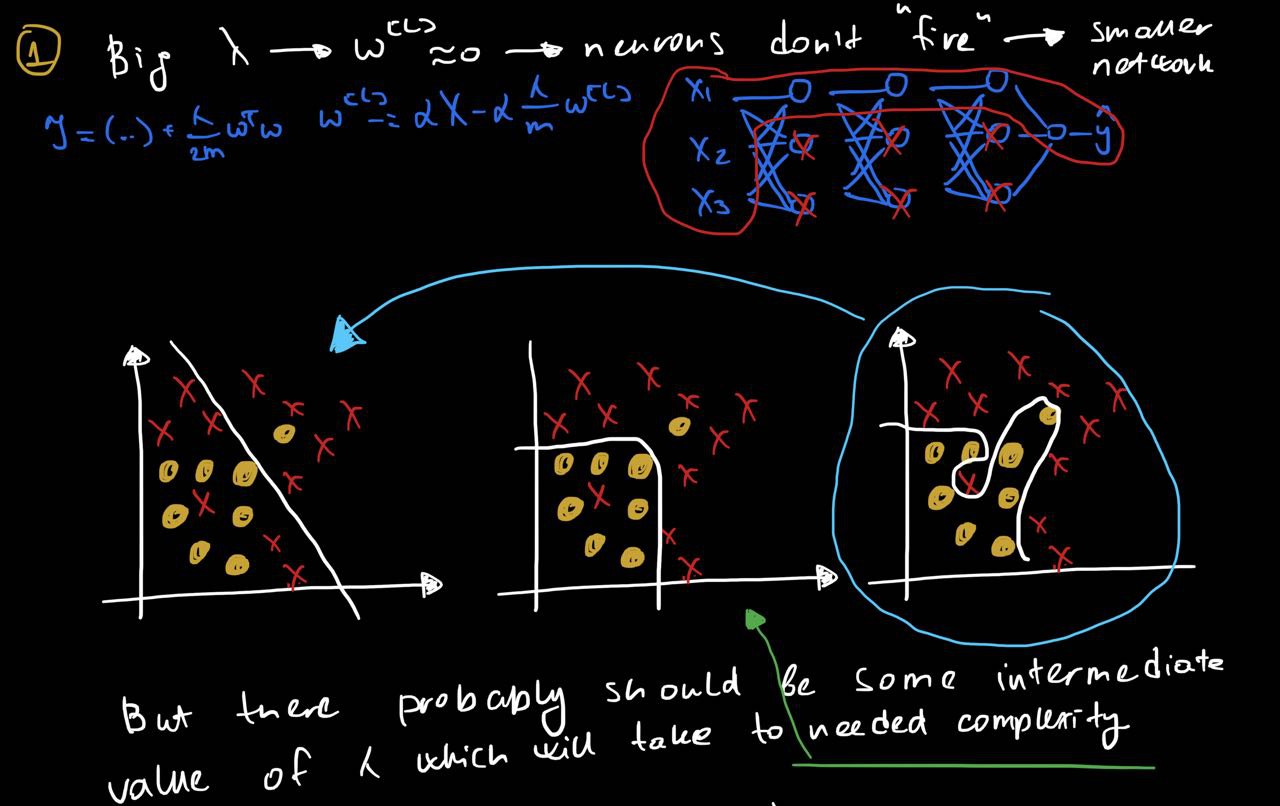 1 Big λ → w^[L] ≈ 0 → neurons don't "fire" → smaller
network
J = (...) + λ/2m wᵀw w^[L] -= αX - α λ/m w^[L]
X₁
X₂ ŷ
X₃
But there probably should be some intermediate
value of λ which will take to needed complexity